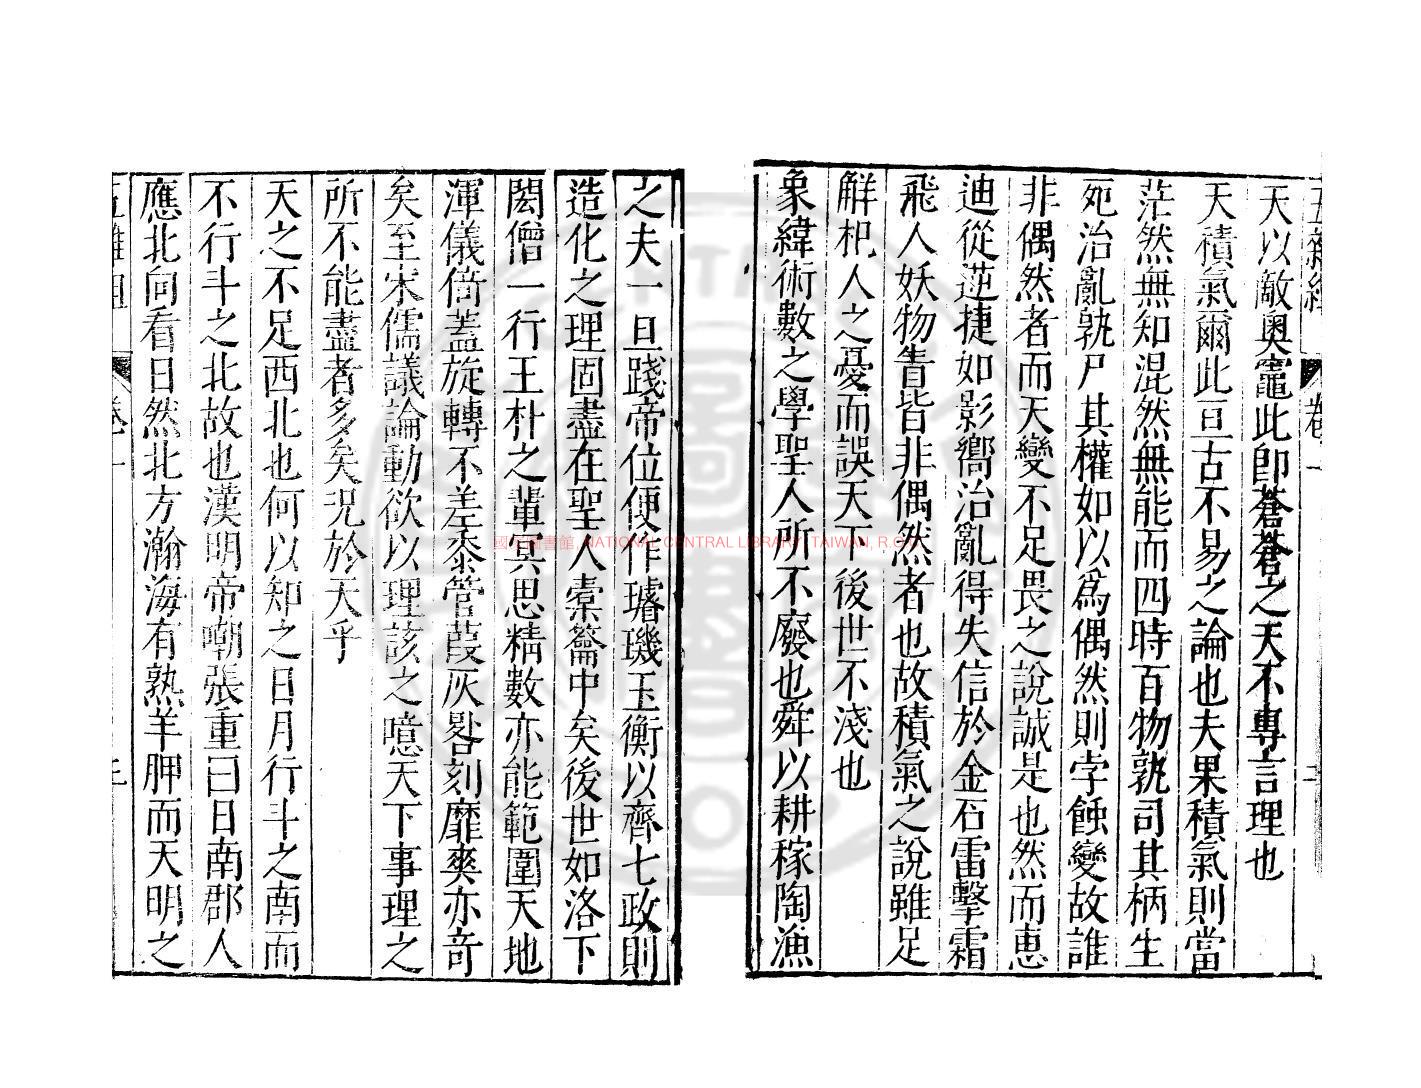 天以敵奧竈此卽蒼蒼之天不專言理也
天積氣爾此亘古不易之論也夫果積氣則當
茫然無知混然無能而四時百物孰司其柄生
死治亂孰尸其權如以爲偶然則孛蝕變故誰
非偶然者而天變不足畏之說誠是也然而惠
迪從逆捷如影嚮治亂得失信於金石雷擊霜
飛人妖物眚皆非偶然者也故積氣之說雖足
解杞人之憂而誤天下後世不淺也
象緯術數之學聖人所不廢也舜以耕稼陶漁
之夫一旦踐帝位便作璿璣玉衡以齊七政則
造化之理固盡在聖人橐籥中矣後世如洛下
閎僧一行王朴之輩冥思精數亦能範圍天地
渾儀倚蓋旋轉不差黍管葭灰晷刻靡爽亦奇
矣至宋儒議論動欲以理該之噫天下事理之
所不能盡者多矣况於天乎
天之不足西北也何以知之日月行斗之南而
不行斗之北故也漢明帝嘲張重曰日南郡人
應北向看日然北方瀚海有熟羊胛而天明之
國家圖書館, NATIONAL CENTRAL LIBRARY, TAIWAN, R.O.C